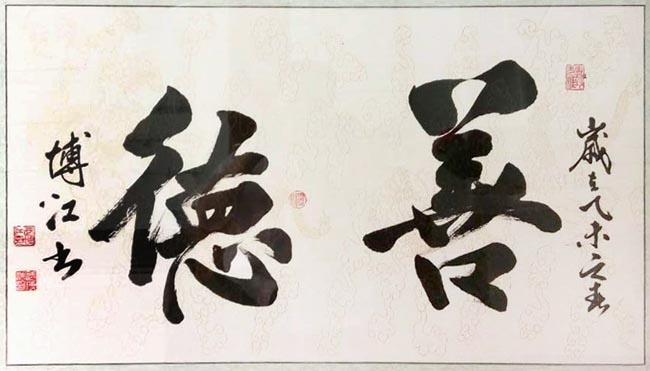 歲在乙未之春
善德
博江书